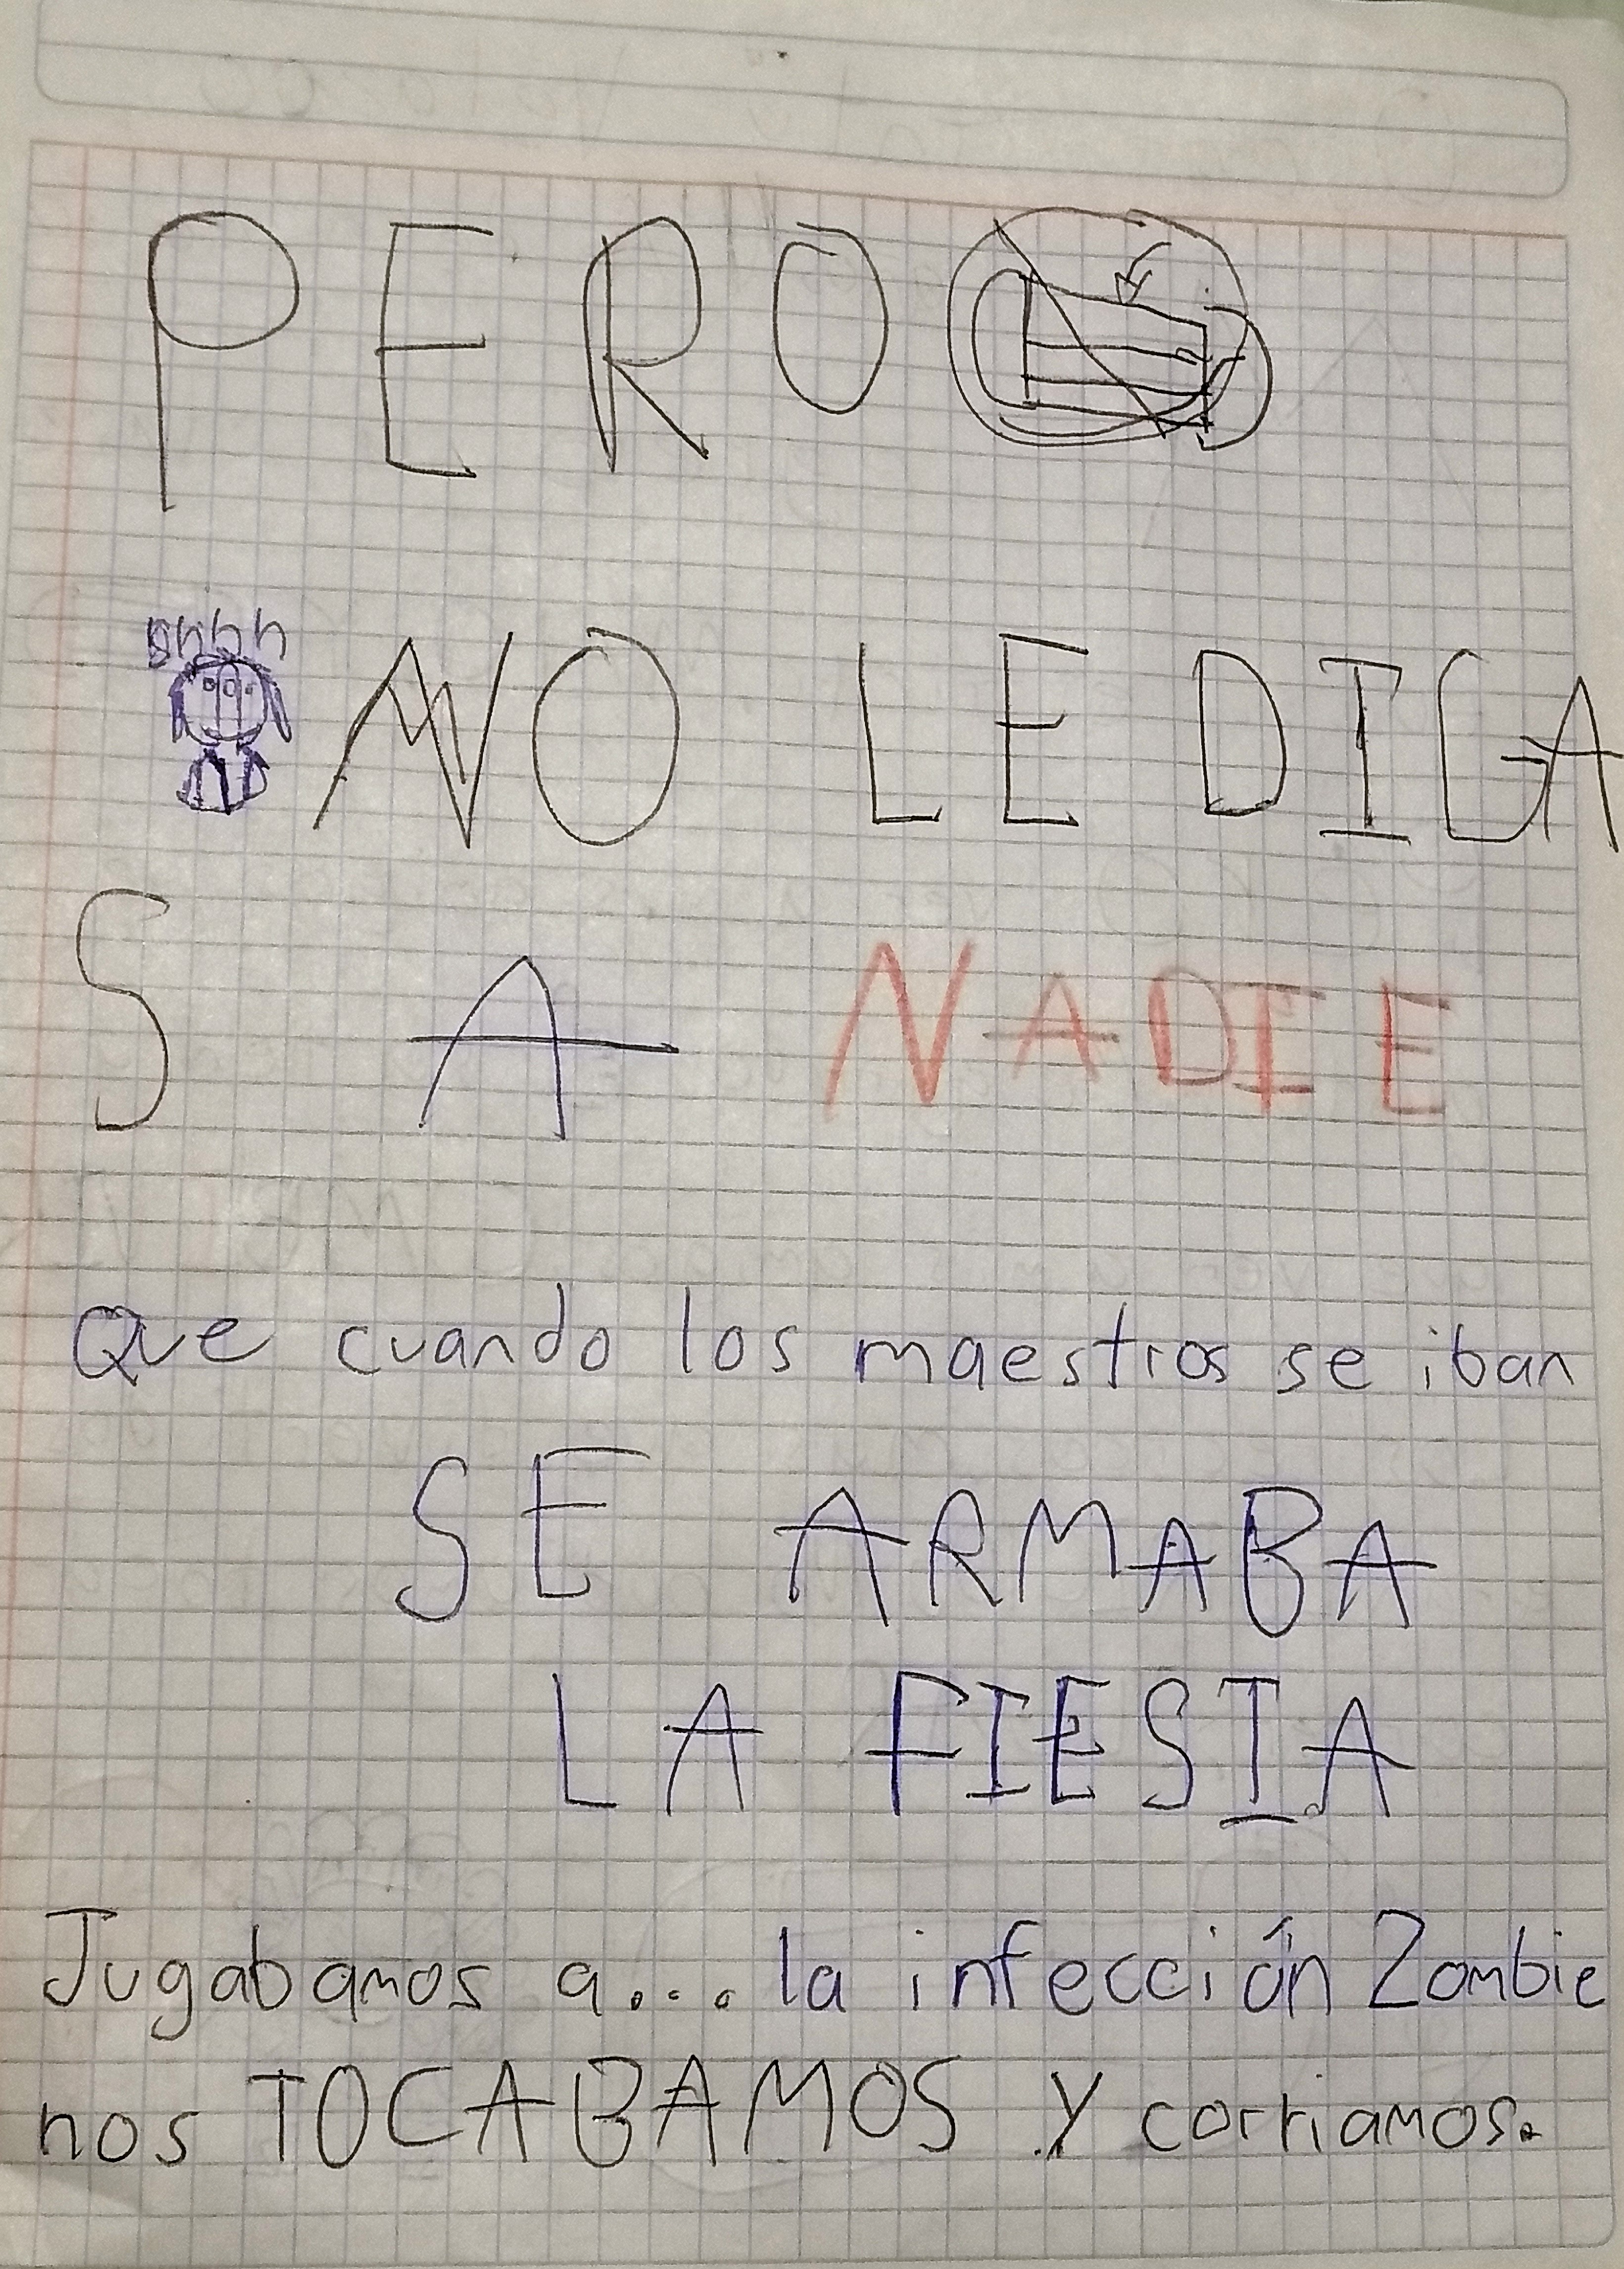 PERO
shhh
NO LE DIGA
S A NADIE
Que cuando los maestros se iban
SE ARMABA
LA FIESTA
Jugabamos a... la infección Zombie
nos TOCABAMOS y corriamos.